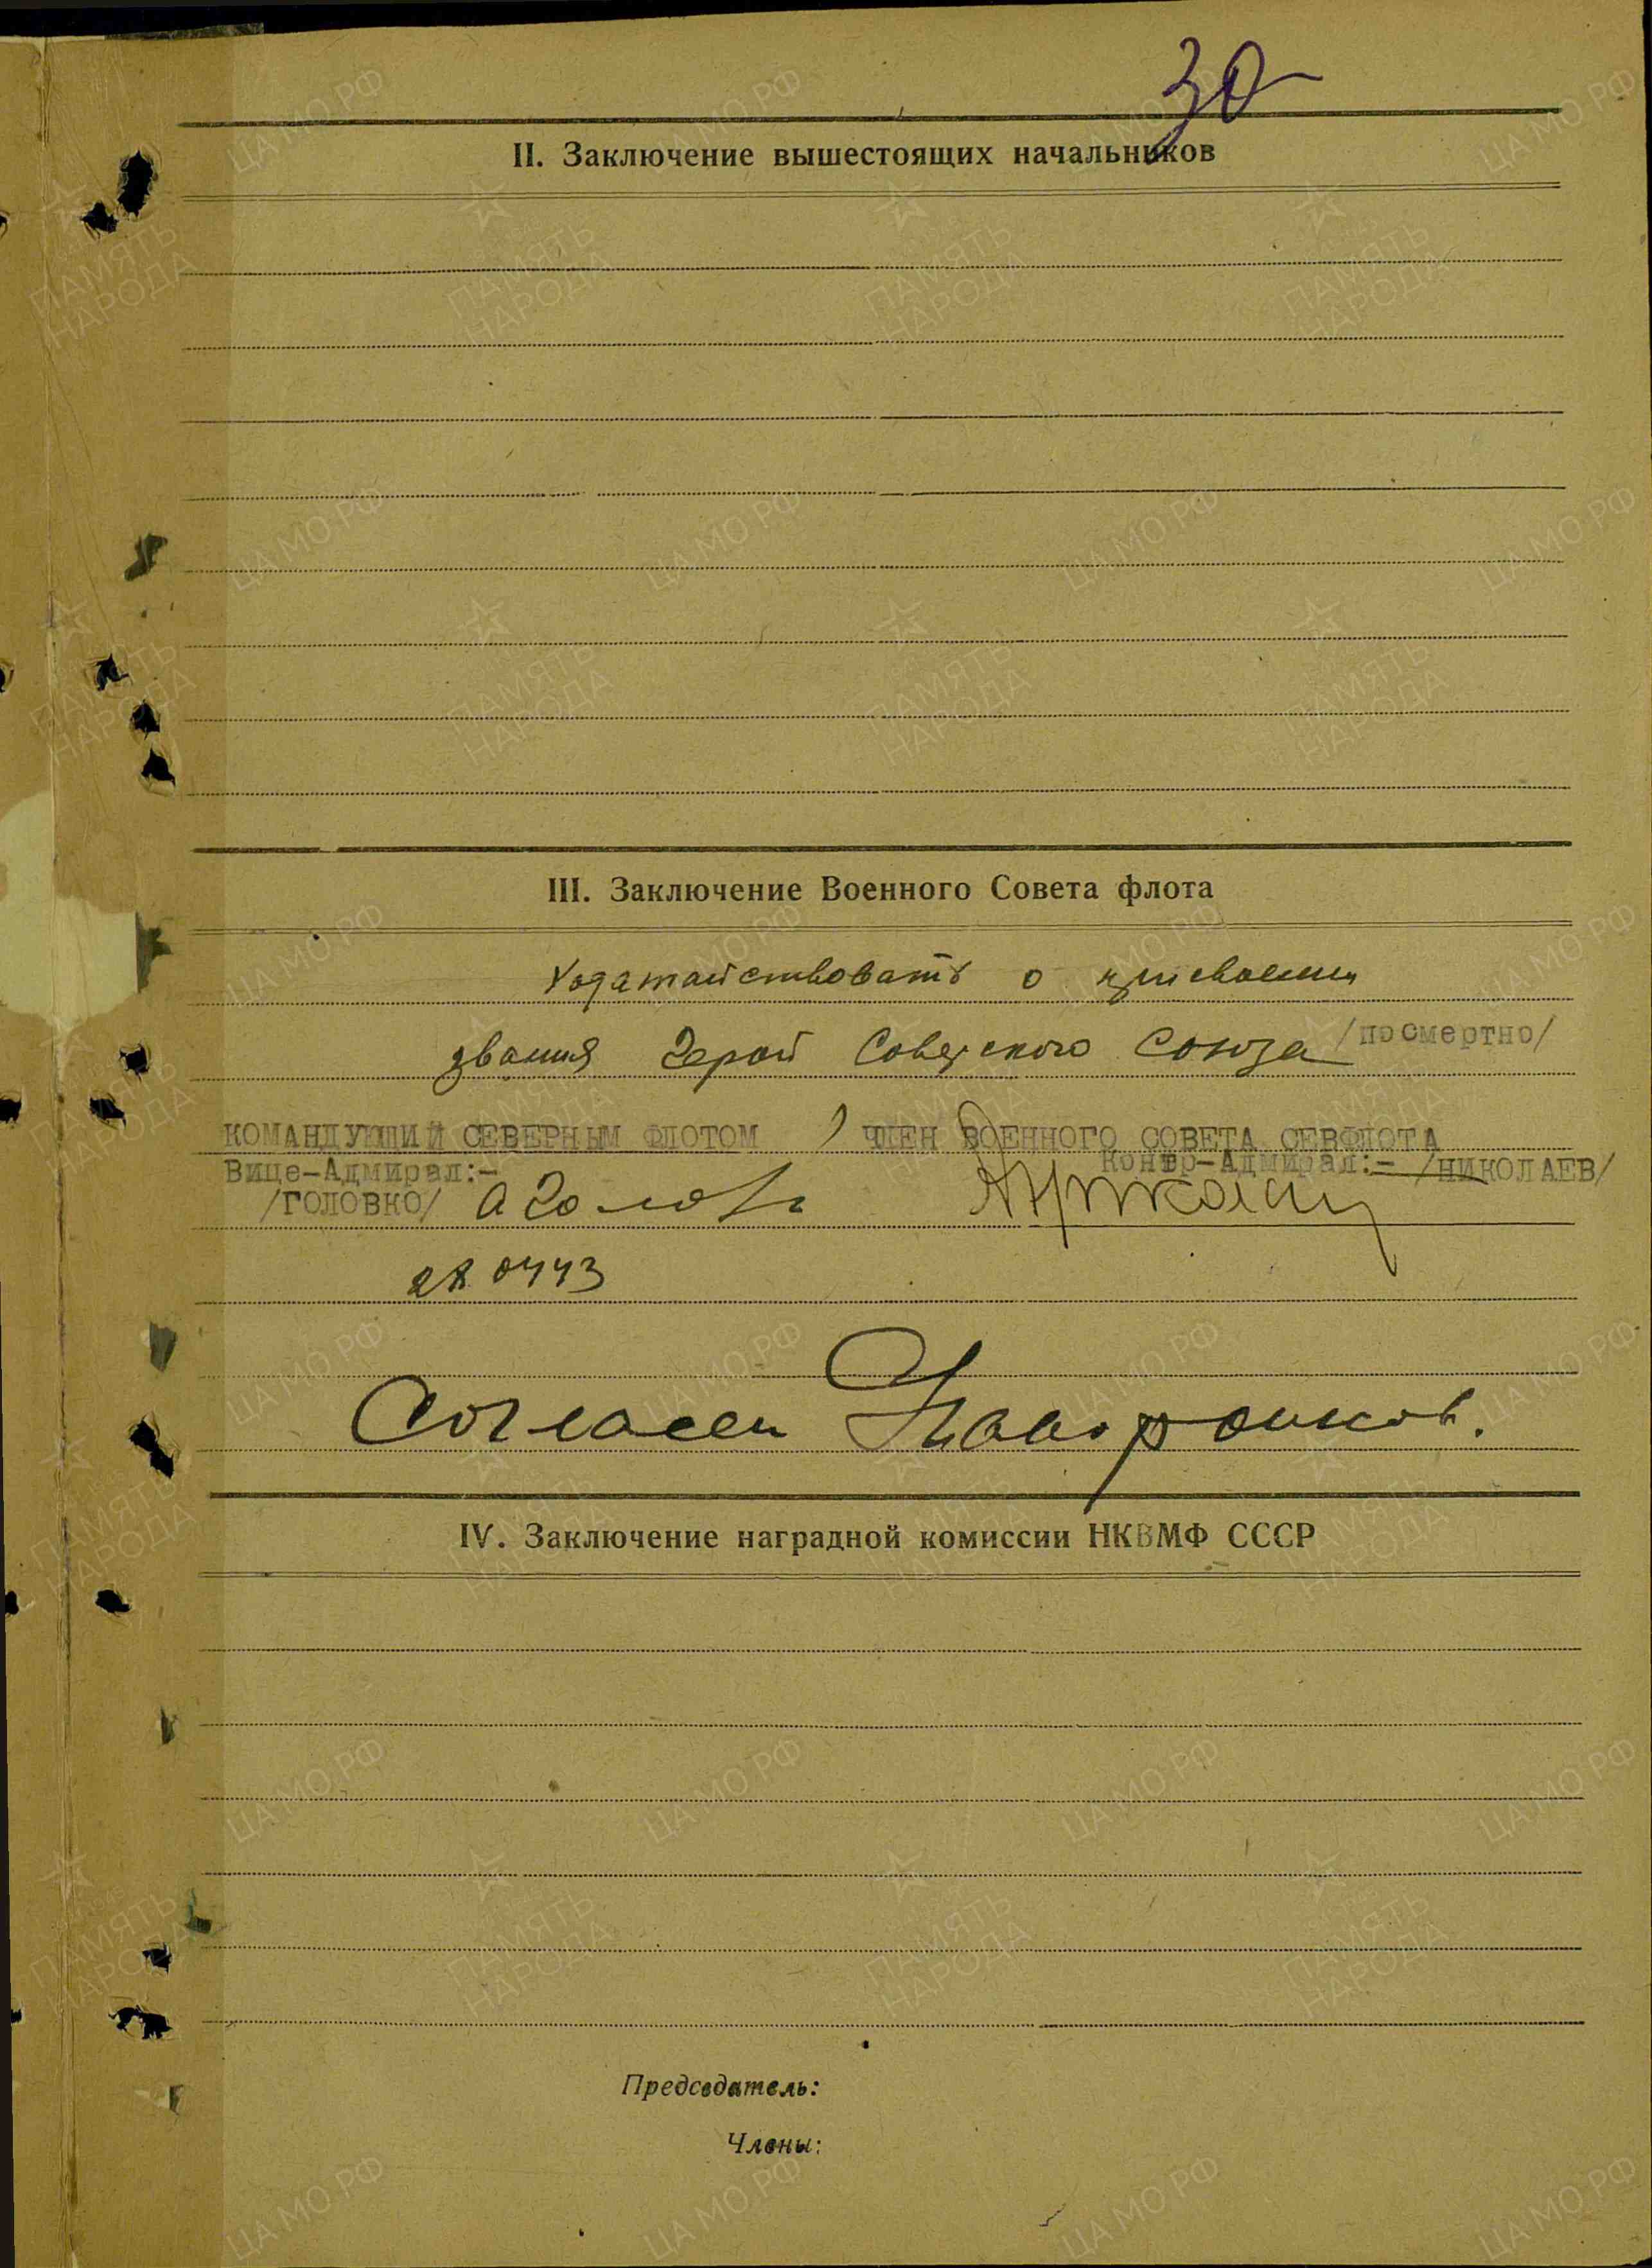 30
II. Заключение вышестоящих начальников
III. Заключение Военного Совета флота
Ходатайствовать о присвоении
звания Герой Советского Союза /посмертно/
КОМАНДУЮЩИЙ СЕВЕРНЫМ ФЛОТОМ ЧЛЕН ВОЕННОГО СОВЕТА СЕВФЛОТА
Вице-Адмирал:- Контр-Адмирал:- /НИКОЛАЕВ/
/ГОЛОВКО/ А Головко
Согласен
IV. Заключение наградной комиссии НКВМФ СССР
Председатель:
Члены:
ЦА МО РФ
ПАМЯТЬ
НАРОДА